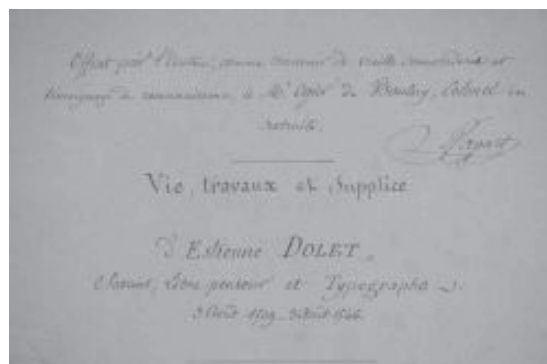 Offert par l'auteur, comme souvenir de vieille camaraderie et
témoignage de reconnaissance, à Mr de Colonel en
retraite.
Vie, travaux et Supplice
d'Estienne DOLET,
Savant, libre penseur et Typographe
3 Août 1509 - 3 Août 1546.